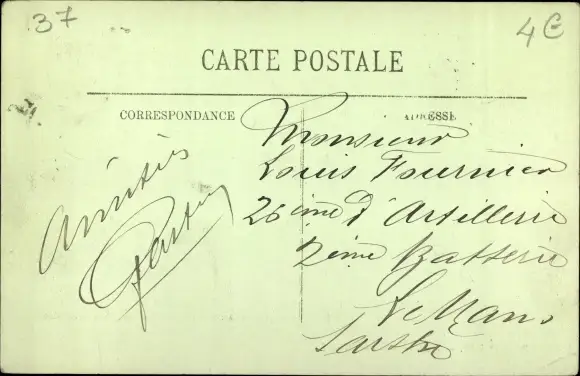 37
4€
CARTE POSTALE
CORRESPONDANCE
ADRESSE
Amitiés
Gaston
Monsieur
Louis Fournier
26ième d'Artillerie
2ième Batterie
Le Mans
Sarthe